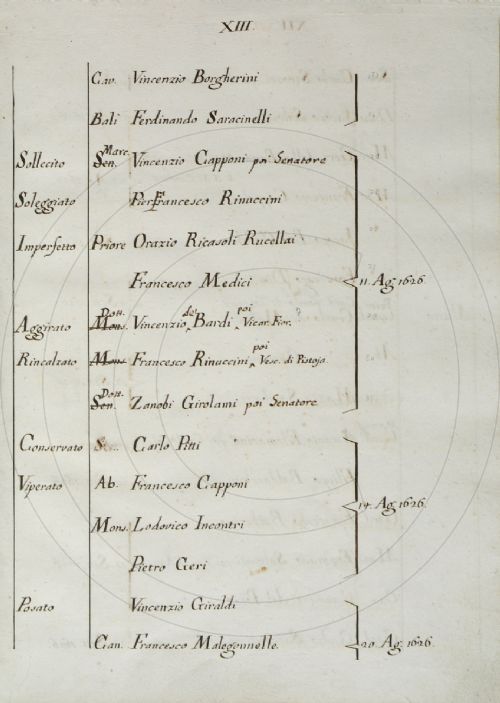 XIII.
Cav. Vincenzio Borgherini
Balì Ferdinando Saracinelli
Sollecito Sen. Marc. Vincenzio Capponi poi Senatore
Soleggiato Pierfrancesco Rinuccini
Imperfetto Priore Orazio Ricasoli Rucellai
Francesco Medici 11. Ag. 1626.
Aggirato Mons. Dott. Vincenzio de' Bardi poi Vicar. Fior.
Rincalzato Mons. Francesco Rinuccini poi Vesc. di Pistoja
Sen. Dott. Zanobi Girolami poi Senatore
Conservato Sen. Carlo Pitti
Viperato Ab. Francesco Capponi
14. Ag. 1626.
Mons. Lodovico Incontri
Pietro Geri
Posato Vincenzio Giraldi
Can. Francesco Malegonnelle. 20. Ag. 1626.